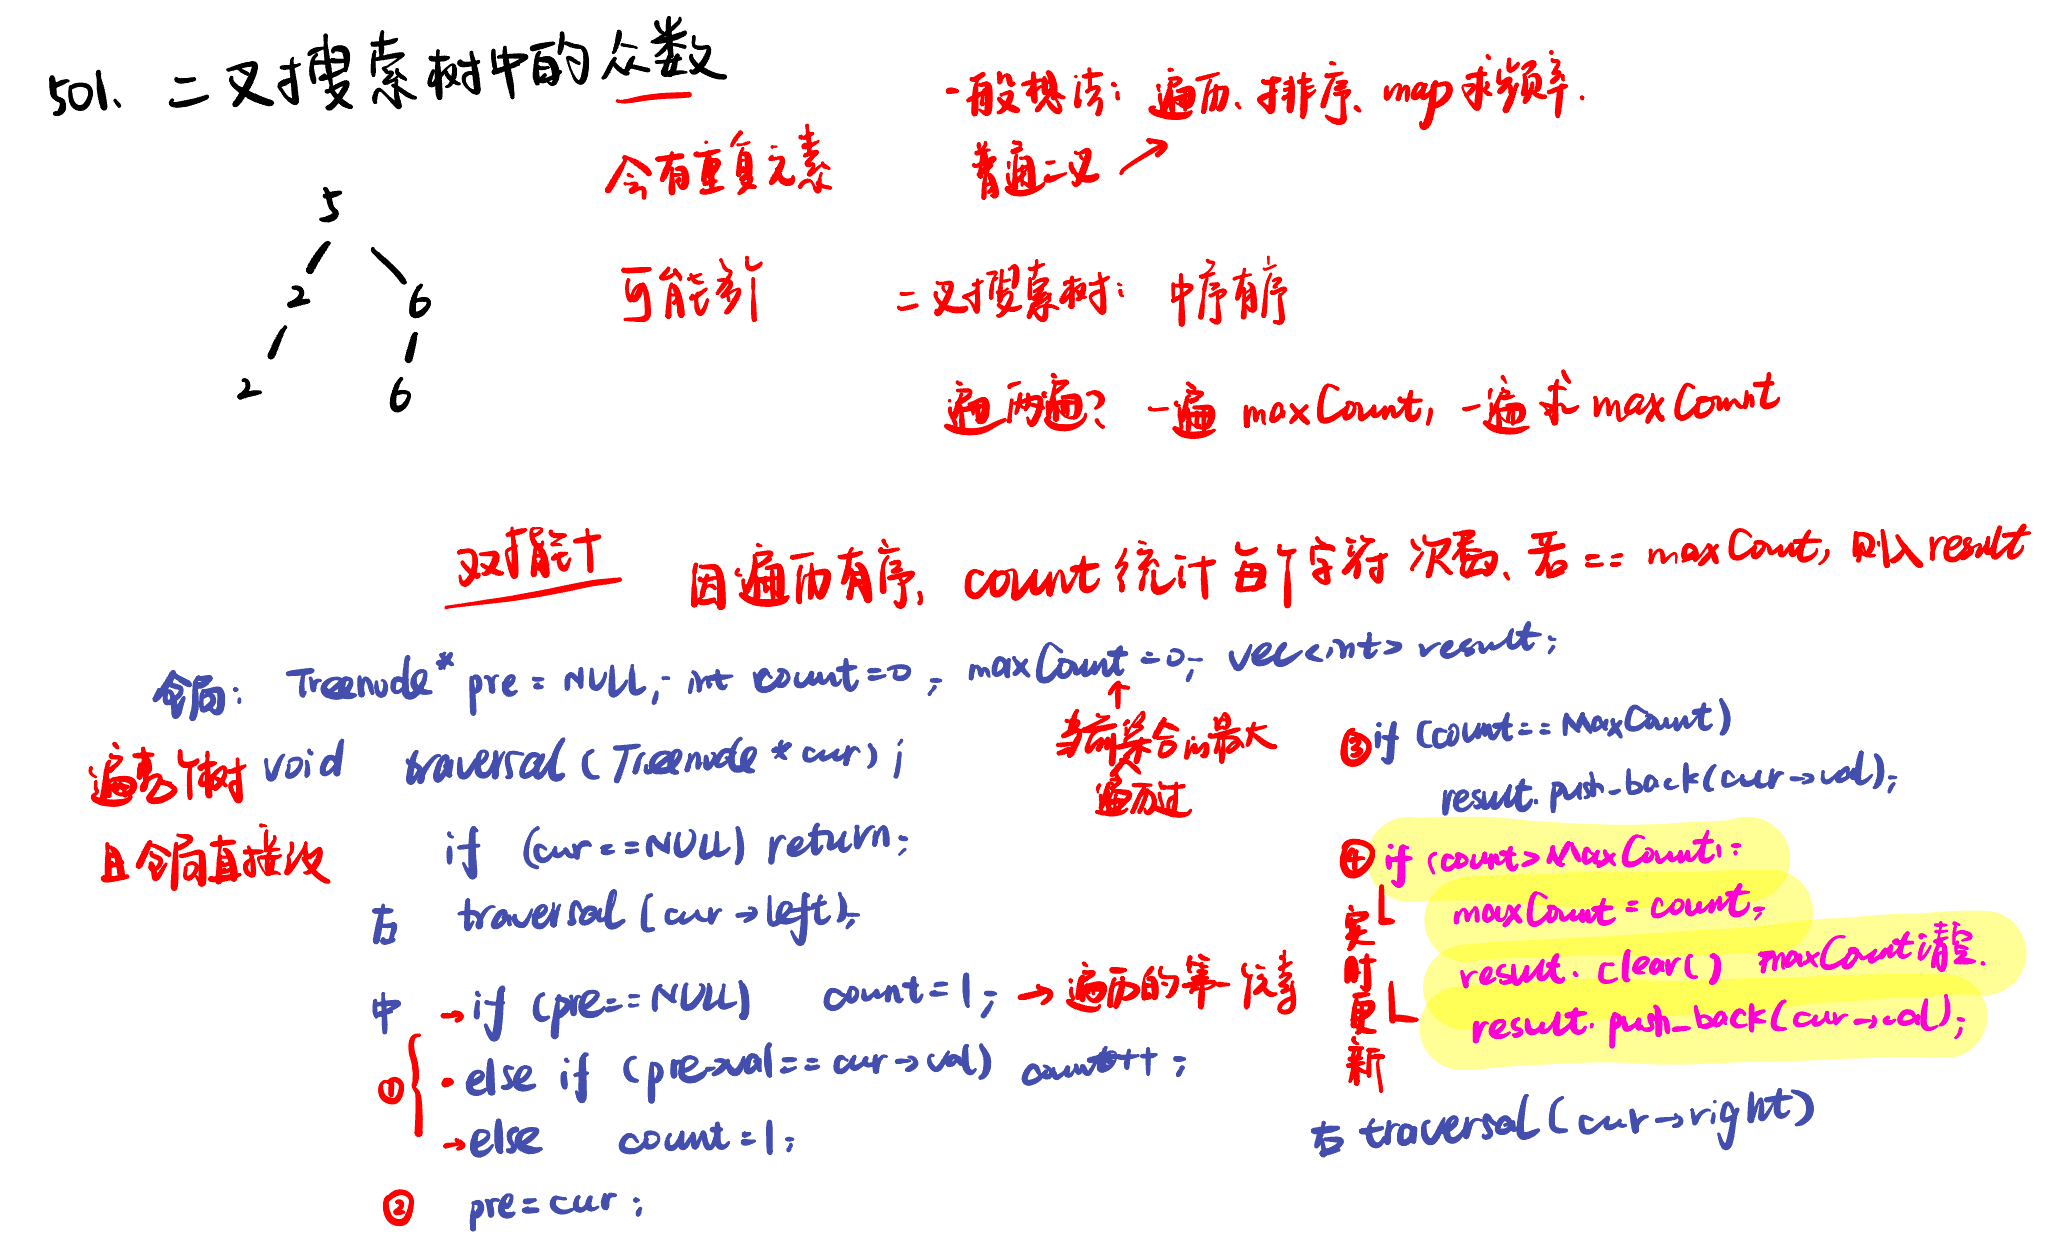 501、二叉搜索树中的众数
一般想法：遍历、排序、map求频率.
会有重复元素
普通二叉
5
2 6
2 6
可能多个
二叉搜索树：中序有序
遍两遍？一遍 maxCount, 一遍求 maxCount
双指针
因遍历有序, count统计每个字符次数、若== maxCount, 则入result
全局： Treenode* pre = NULL; int count=0; maxCount=0; vec<int> result;
当前集合的最大
遍历过
遍整个树 void traversal (Treenode * cur) ;
且全局直接改
if (cur==NULL) return;
右 traversal (cur→left);
中 → if (pre==NULL) count=1; → 遍历的第一个元素
① · else if (pre→val==cur→val) count++;
→ else count=1;
② pre=cur;
③ if (count==MaxCount)
result.push_back(cur→val);
④ if (count>MaxCount):
maxCount = count;
result.clear() maxCount清空.
result.push_back(cur→val);
实时更新
右 traversal (cur→right)